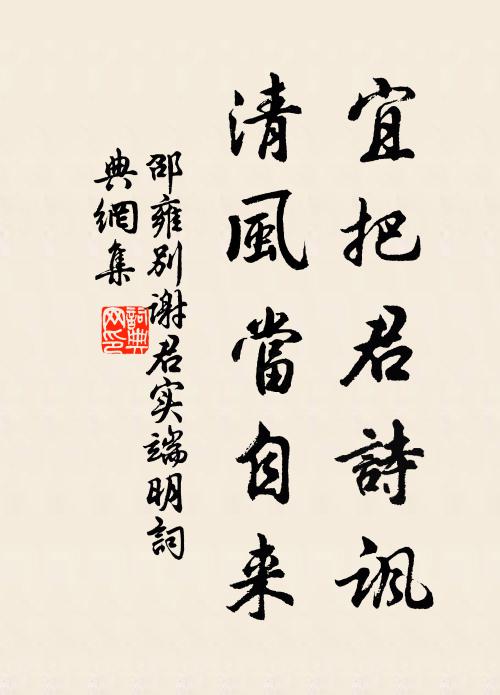 宜把君詩諷
清風當自来
邵雍别謝君实端明詞
典網集
詞典
网印